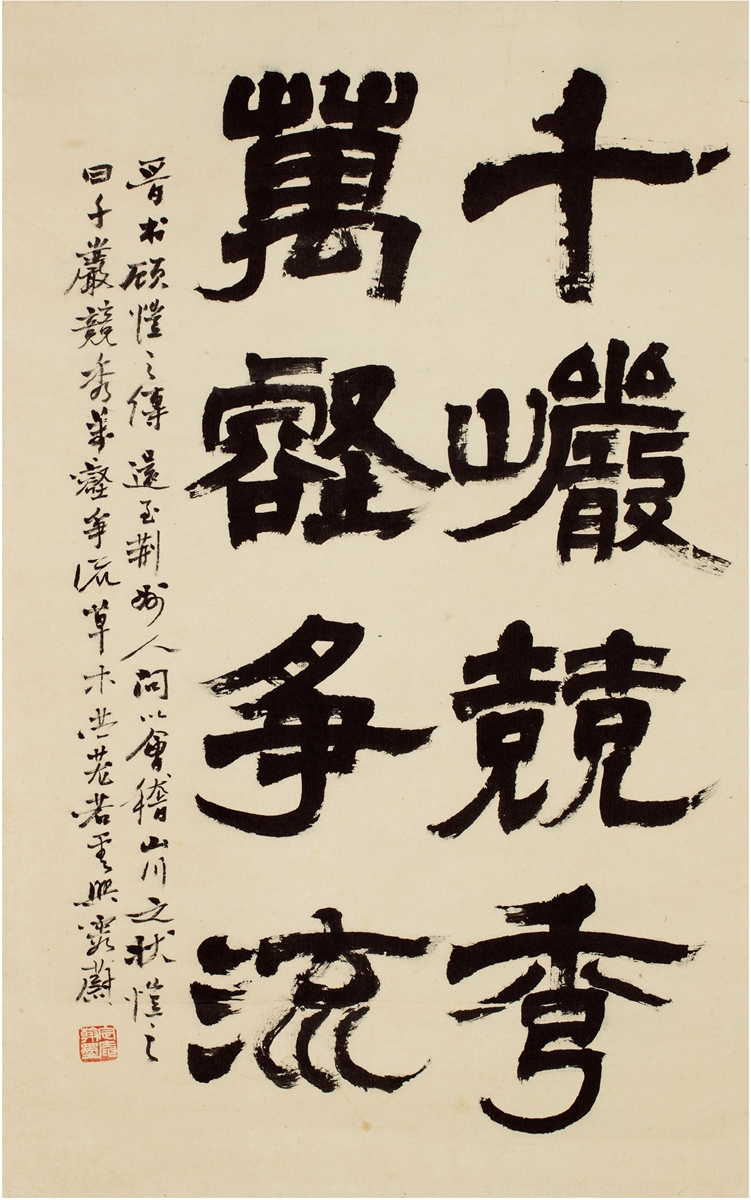 千巖競秀
萬壑爭流
晉書顧愷之傳還至荊州人問以會稽山川之狀愷之
曰千巖競秀萬壑爭流草木蒙蘢若雲興霞蔚